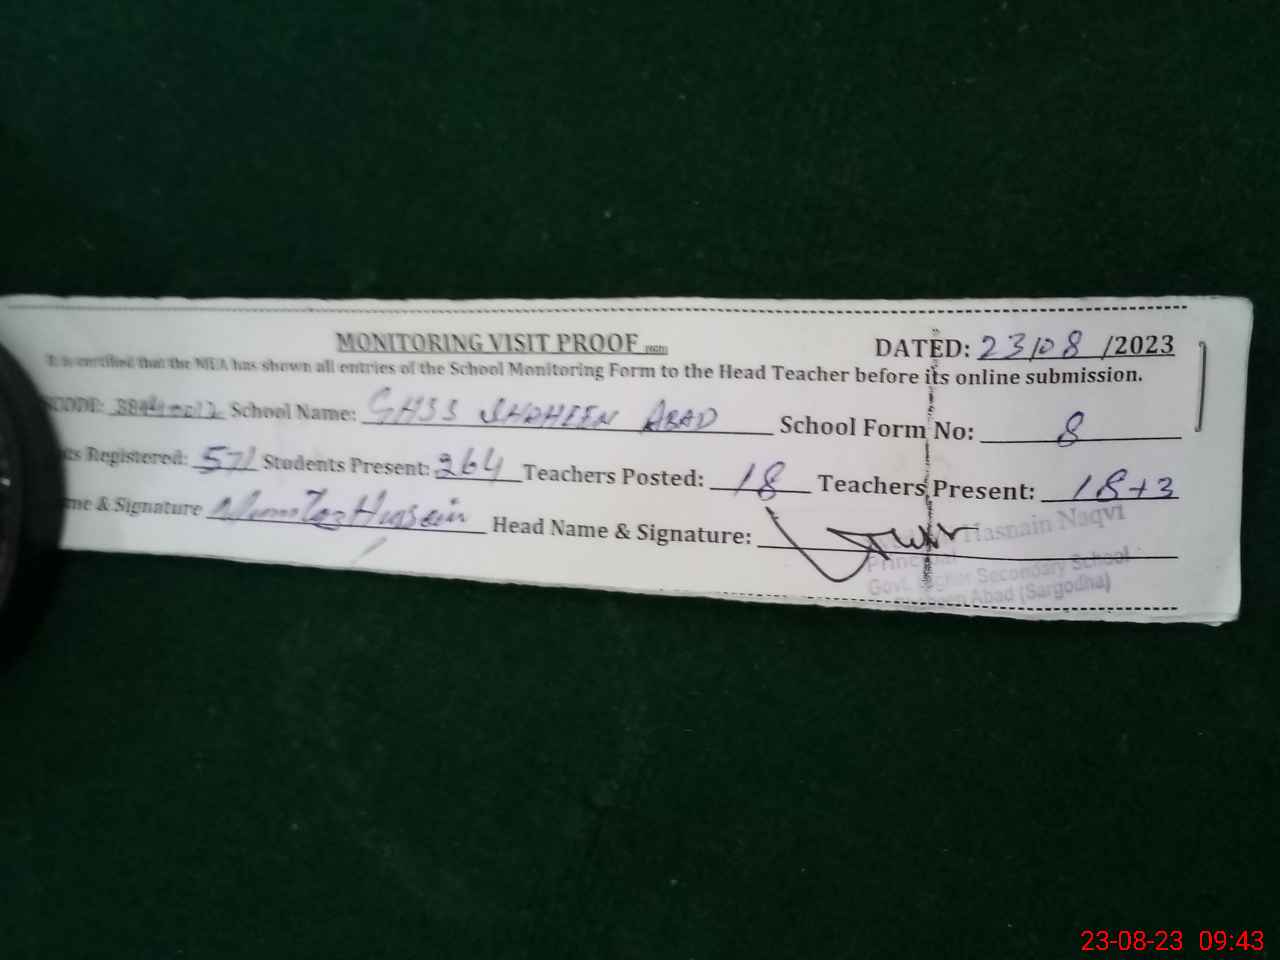 MONITORING VISIT PROOF DATED: 23/08/2023
It is certified that the MEA has shown all entries of the School Monitoring Form to the Head Teacher before its online submission.
School Name: GHSS SHAHEEN ABAD School Form No: 8
Registered: 571 Students Present: 264 Teachers Posted: 18 Teachers Present: 18+3
& Signature Mumtaz Hussain Head Name & Signature:
Hasnain Naqvi
Principal
Govt. Higher Secondary School
Abad (Sargodha)
23-08-23 09:43